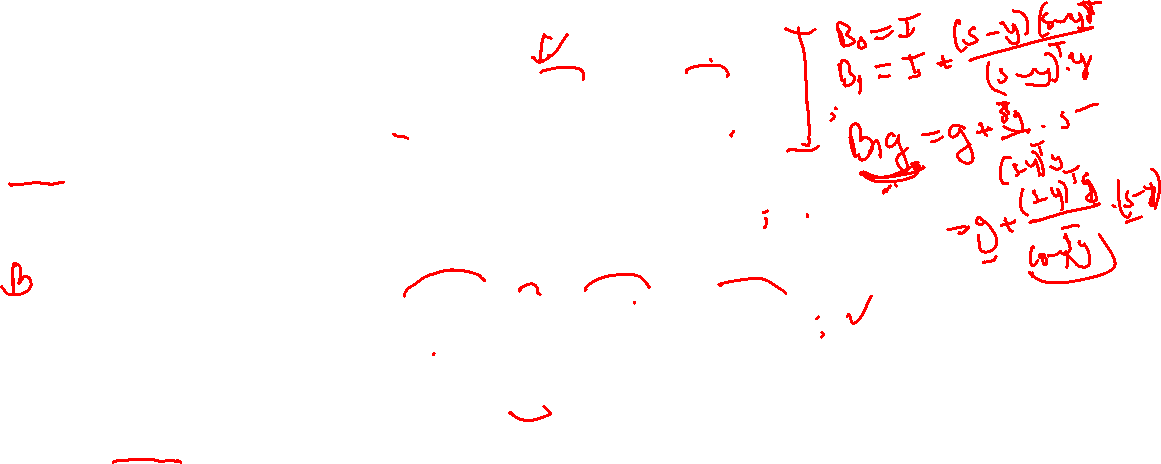 B₀ = I
B₁ = I + (s-y)(s-y)ᵀ / (s-y)ᵀ.y
B₁g = g +
(s-y)ᵀy
→ g + (s-y)ᵀg / (s-y)ᵀy .(s-y)
B